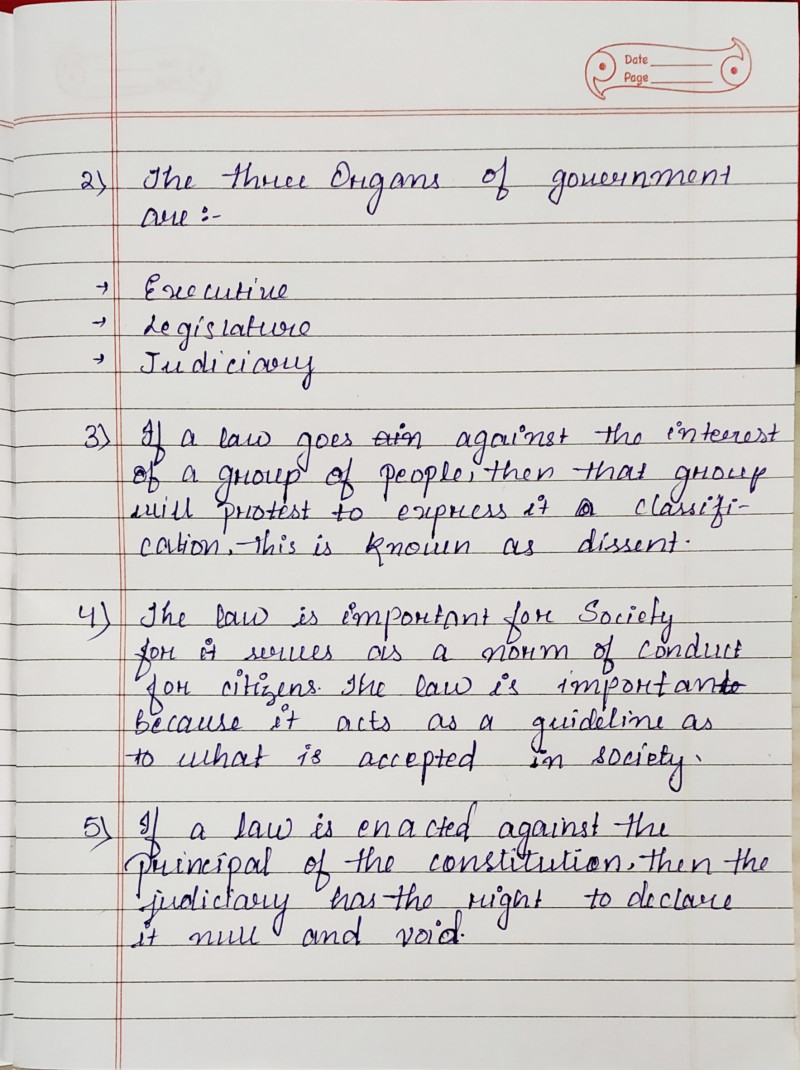 Date
Page
2) The three Organs of government
are :-
→ Executive
→ Legislature
→ Judiciary
3) If a law goes ain against the interest
of a group of people, then that group
will protest to express it a classifi-
cation. This is known as dissent.
4) The law is important for Society
for it serves as a norm of conduct
for citizens. The law is important
because it acts as a guideline as
to what is accepted in society.
5) If a law is enacted against the
principal of the constitution, then the
judiciary has the right to declare
it null and void.